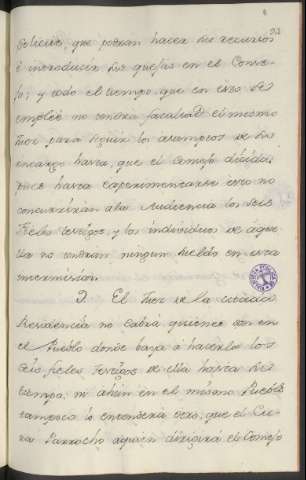 23
que podran hacer sus recursos
e introducir sus quejas en el Conse-
jo; y todo el tiempo que en esto se
emplée no tendrá facultad el mismo
Juez para seguir los asumptos de su
encargo hasta que el Consejo decida:
hasta experimentarse esto no
concurrirán ala Audiencia los seis
fieles testigos, y los individuos de aque-
lla no tendran ningun sueldo en esta
intermision.
3. El Juez de la
Residencia no sabrá quienes son en
el Pueblo donde baya á hacerlo los
seis fieles testigos de ella hasta su
tiempo, ni ahun en el mismo Pueblo
tampoco lo entenderá otro, que el Cu-
ra Parrocho aquien dirigirá el Consejo